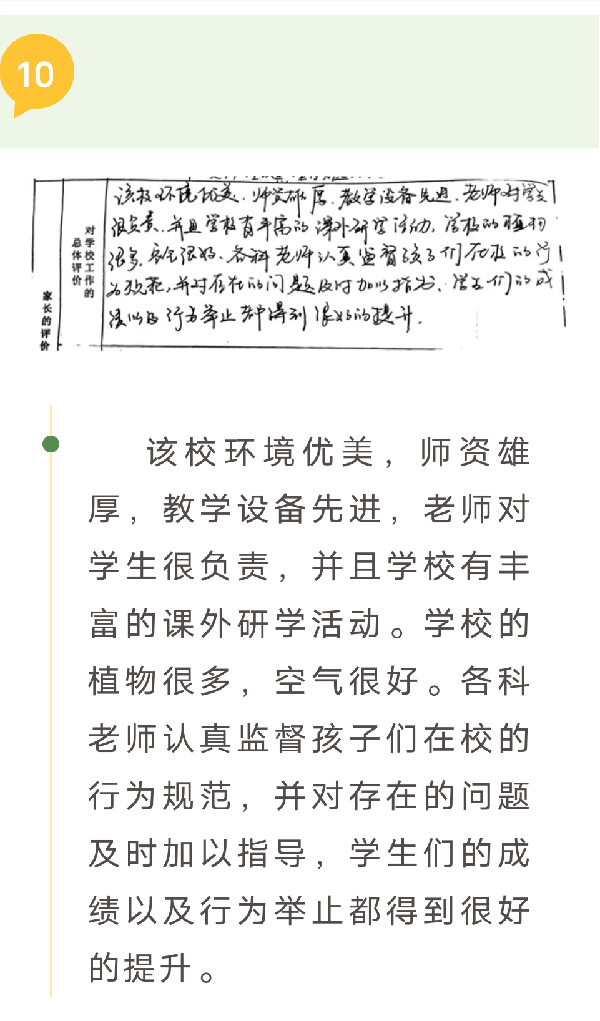 10
该校环境优美，师资雄厚，教学设备先进，老师对学生
很负责，并且学校有丰富的课外研学活动，学校的植物
很多，空气很好，各科老师认真监督孩子们在校的行
为规范，并对存在的问题及时加以指导，学生们的成
绩以及行为举止都得到很好的提升．
对学校工作的
总体评价
家长的评价
该校环境优美，师资雄
厚，教学设备先进，老师对
学生很负责，并且学校有丰
富的课外研学活动。学校的
植物很多，空气很好。各科
老师认真监督孩子们在校的
行为规范，并对存在的问题
及时加以指导，学生们的成
绩以及行为举止都得到很好
的提升。